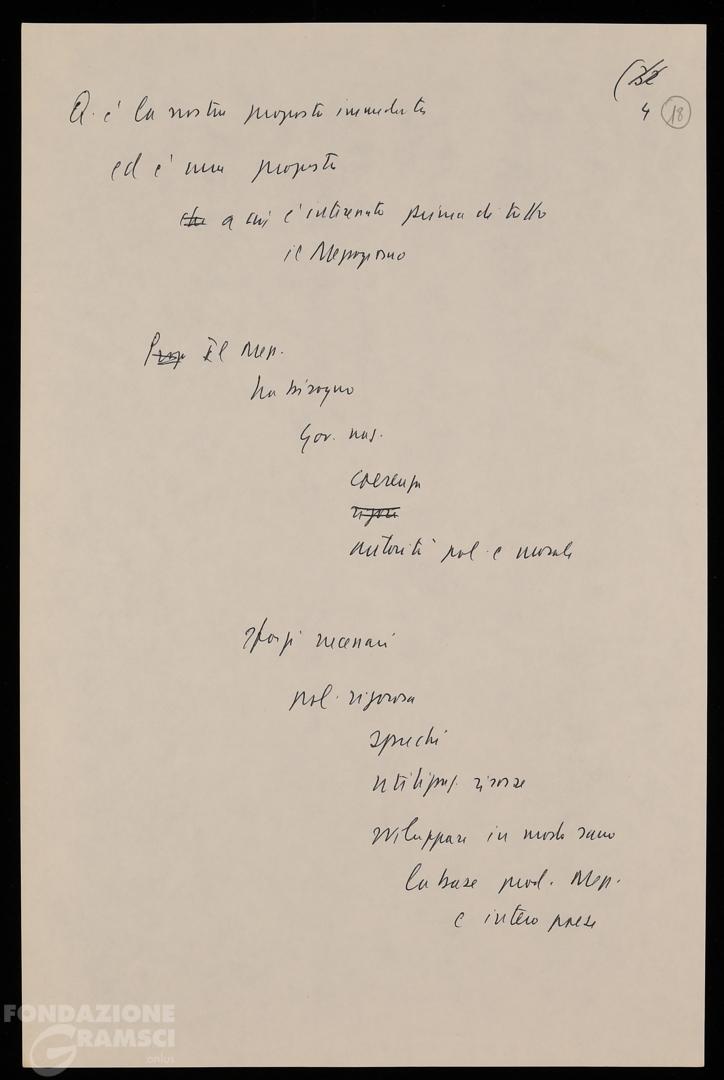 4 18
Q. è la nostra proposta immediata
ed è una proposta
che a cui è interessato prima di tutto
il Mezzogiorno
Prop Il Mezz.
ha bisogno
Gov. naz.
coerenza
rigore
autorità pol. e morale
sforzi necessari
pol. rigorosa
sprechi
utilizzaz. risorse
sviluppare in modo sano
la base prod. Mezz.
e intero paese
FONDAZIONE
GRAMSCI
onlus